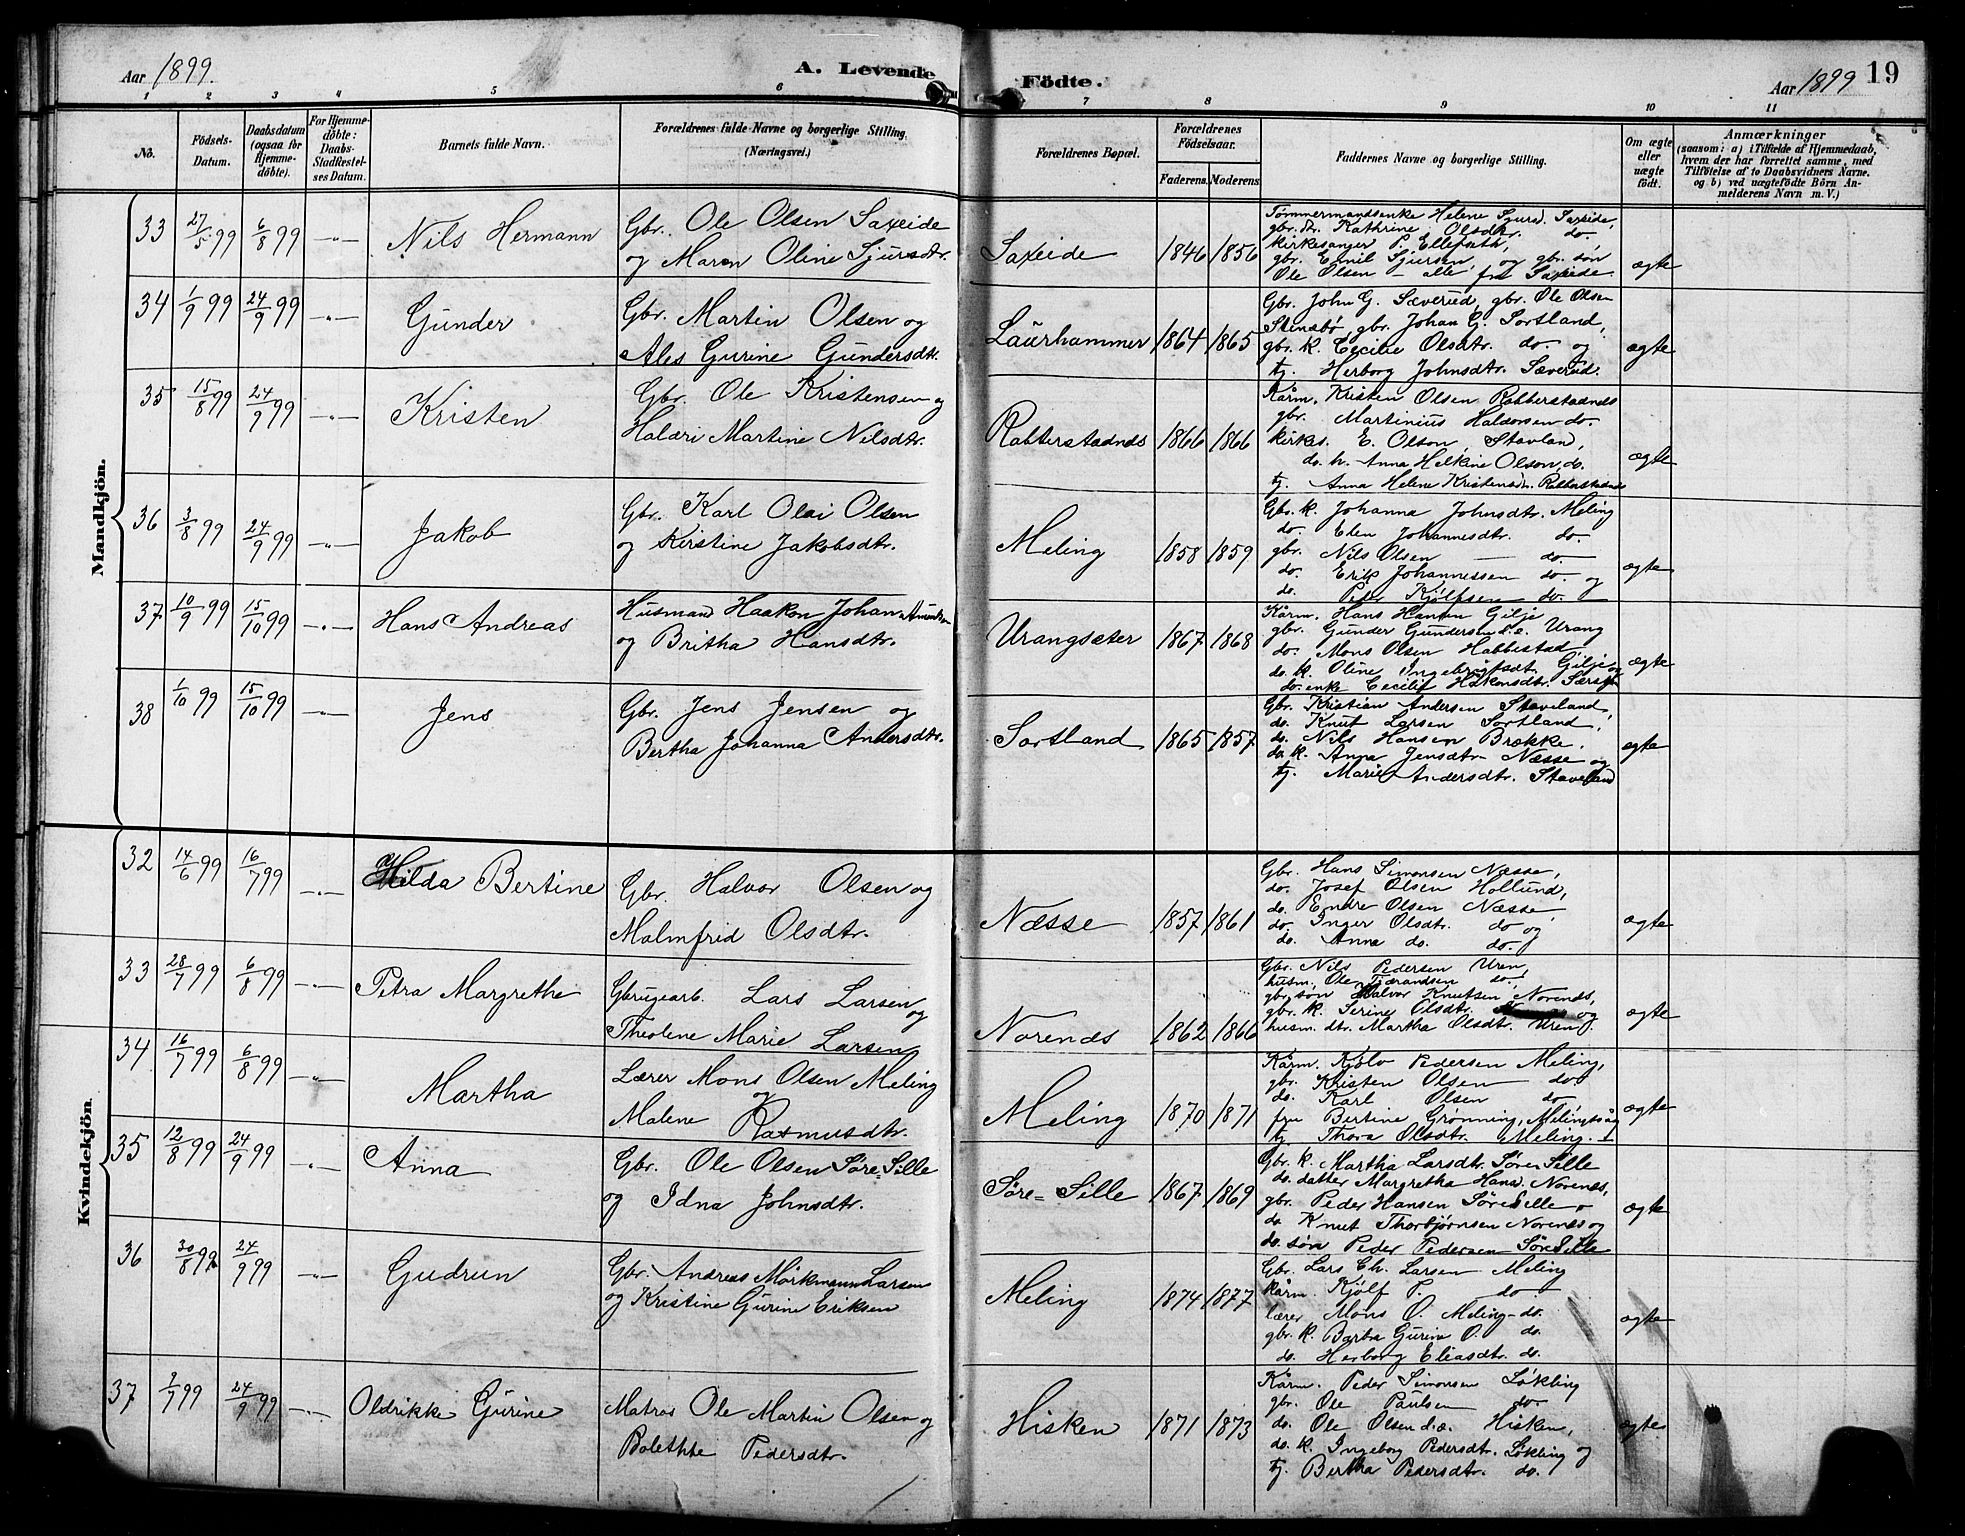 Aar 1899.
A. Levende Födte.
Aar 1899
19
1 2 3 4 5 6 7 8 9 10 11
No.
Födsels-Datum.
Daabsdatum (ogsaa for Hjemme-döbte).
For Hjemme-döbte: Daabs-Stadfæstel-ses Datum.
Barnets fulde Navn.
Forældrenes fulde Navne og borgerlige Stilling. (Næringsvei.)
Forældrenes Bopæl.
Forældrenes Födselsaar.
Faderens. Moderens.
Faddernes Navne og borgerlige Stilling.
Om ægte eller uægte födt.
Anmærkninger
(saasom: a) i Tilfælde af Hjemmedaab,
hvem der har forrettet samme, med
Tilföielse af to Daabsvidners Navne.
og b) ved uægtefödte Börn An-
melderens Navn m. V.)
Mandkjön.
33 27/5 99 6/8 99 -"- Nils Hermann
Gbr. Ole Olsen Saxeide
og Maren Oline Sjursdtr.
Saxeide 1846 1856
Tømmermandsenke Helene Sjursd. Saxeide,
gbr. dr. Kathrine Olsdtr. do.
Kirkesanger P. Ellefseth,
gbr. Emil Sjursen, og gbr. søn
Ole Olsen – alle fra Saxeide
ægte
34 1/9 99 24/9 99 -"- Gunder
Gbr. Martin Olsen og
Ales Gurine Gundersdtr.
Laurhammer 1864 1865
Gbr. John G. Sæverud, gbr. Ole Olsen
Stensbø, gbr. Johan G. Sortland,
gbr. k. Cecilie Olsdtr. do. og
tj. Herborg Johnsdtr. Sæverud.
ægte
35 15/8 99 24/9 99 -"- Kristen
Gbr. Ole Kristensen og
Haldri Martine Nilsdtr.
Rabberstadnæs 1866 1866
Kårm. Kristen Olsen Rabberstadnæs
gbr. Martinius Haldorsen do.
kirkes. E. Olson, Stavland,
do. h. Anna Helkine Olson, do.
tj. Anna Helene Kristensd. Rabberstadnæs
ægte
36 3/8 99 24/9 99 -"- Jakob
Gbr. Karl Olai Olsen
og Kirstine Jakobsdtr.
Meling 1858 1859
Gbr. k. Johanna Johnsdtr. Meling
do. Elen Johannesdtr. do.
gbr. Nils Olsen — do.
do. Erik Johannessen do. og
do. Peder Kjølfsen do.
ægte
37 10/9 99 15/10 99 -"- Hans Andreas
Husmand Haakon Johan Amundsen
og Britha Hansdtr.
Urangsæter 1867 1868
Kårm. Hans Hansen Gilje
gbr. Gunder Gundersen d.e. Urang
do. Mons Olsen Habbestad
do. k. Oline Ingebrigtsdt. Gilje og
do. enke Cecilie Håkonsdtr.
ægte
38 1/10 99 15/10 99 -"- Jens
Gbr. Jens Jensen og
Bertha Johanna Andersdtr.
Sortland 1865 1857
Gbr. Kristian Andersen Staveland,
do. Knut Larsen Sortland,
do. Nils Hansen Brække,
do. k. Anna Jensdtr. Næsse og
tj. Marie Andersdtr. Staveland
ægte
Kvindekjön.
32 14/6 99 16/7 99 -"- Hilda Bertine
Gbr. Halvor Olsen og
Malmfrid Olsdtr.
Næsse 1857 1861
Gbr. Hans Simonsen Næsse,
do. Josef Olsen Hollund,
do. Endre Olsen Næsse
do. Inger Olsdtr. do og
do. Anna do. do.
ægte
33 28/7 99 6/8 99 -"- Petra Margrethe
Gbrugearb. Lars Larsen og
Theoline Marie Larsen
Norenes 1862 1866
Gbr. Nils Pedersen Uren,
husm. Ole Tjærandsen do,
gbr. søn Halvor Knutsen Norenes,
gbr. k. Serine Olsdtr. og
husm. dtr. Martha Olsdtr. Uren.
ægte
34 16/7 99 6/8 99 -"- Martha
Lærer Mons Olsen Meling
og
Malene Rasmusdtr.
Meling 1870 1871
Kårm. Kjølv Pedersen Meling,
gbr. Kristen Olsen — do
do. Karl Olsen do
fru Bertine Grønning, Melingsvåg
tj. Thora Olsdtr. Meling.
ægte
35 12/8 99 24/9 99 -"- Anna
Gbr. Ole Olsen Søre Sille
og Idna Johnsdtr.
Søre=Sille 1867 1869
Gbr. k. Martha Larsdtr. Søre Sille
do. datter Margretha Hansd. Norenes,
gbr. Peder Hansen Søre Sille
do. Knut Thorbjørnsen Norenes og
do. søn Peder Pedersen Søre Sille
ægte
36 30/8 99 24/9 99 -"- Gudrun
Gbr. Andreas Mörkmann Larsen
og Kristine Gurine Eriksen
Meling 1874 1877
Gbr. Lars Ch. Larsen Meling
kårm. Kjølf P. do
lærer Mons O. Meling do.
gbr. k. Barbra Gurine O. do.
do. Herborg Eliasdtr. do.
ægte
37 2/7 99 24/9 99 -"- Oldrikke Gurine
Matros Ole Martin Olsen og
Bolethte Pedersdtr.
Hisken 1871 1873
Kårm. Peder Simonsen Løkling
gbr. Ole Paulsen do
do. Ole Olsen d.æ. Hisken,
do. k. Ingeborg Pedersdtr. Løkling og
tj. Bertha Pedersdtr. do.
ægte